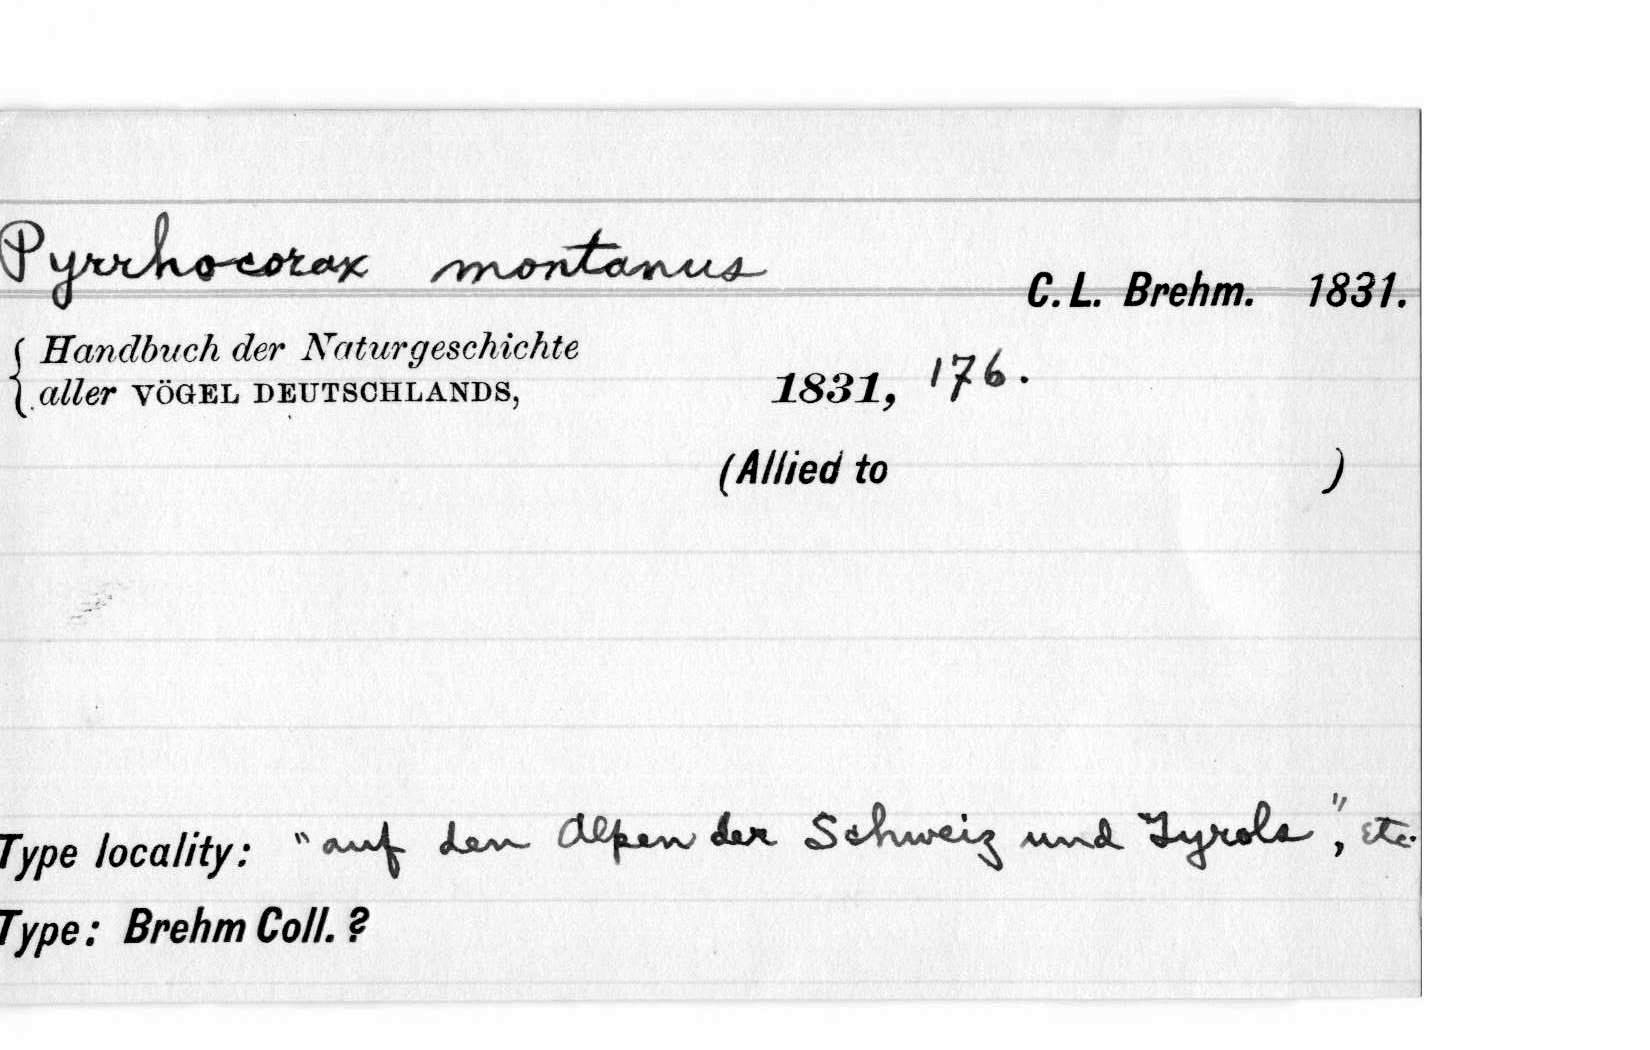 Pyrrhocorax montanus
C. L. Brehm. 1831.
Handbuch der Naturgeschichte
aller VÖGEL DEUTSCHLANDS, 1831, 176.
(Allied to )
Type locality: "auf den Alpen der Schweiz und Tyrols", etc.
Type: Brehm Coll. ?